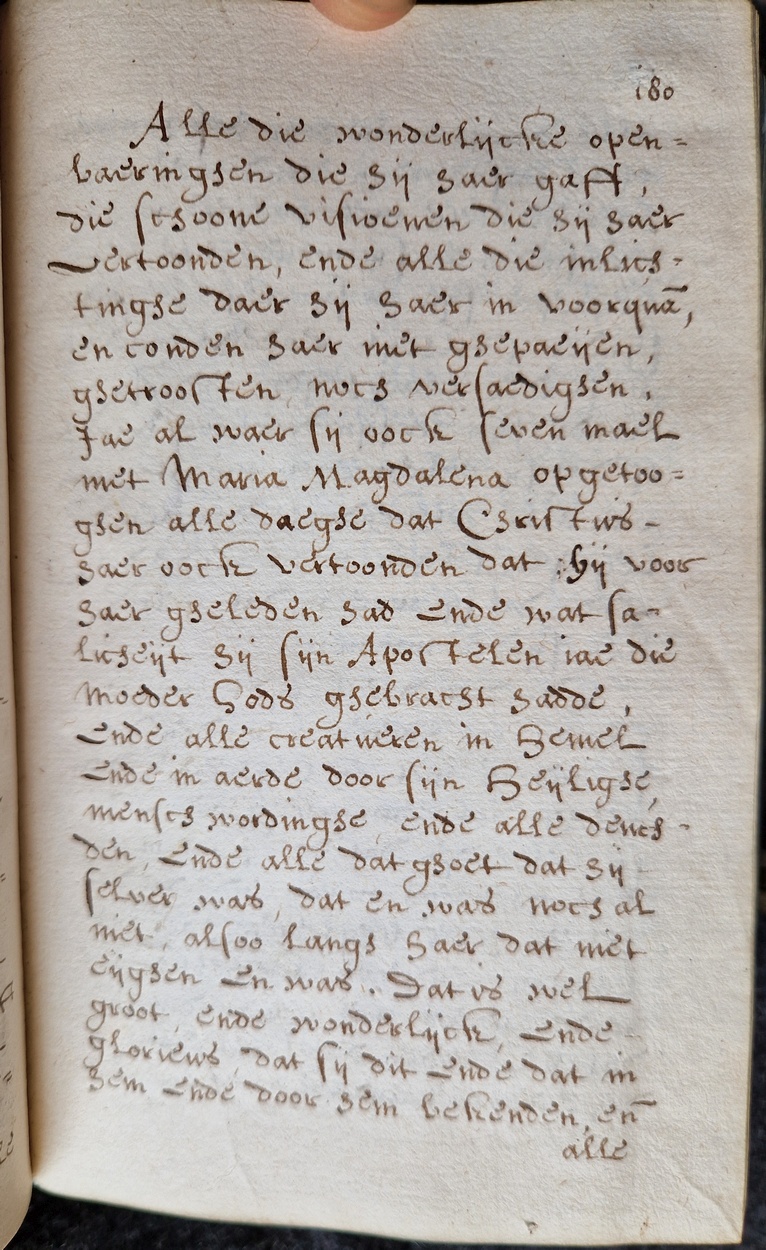 180
Alle die wonderlijcke open=
baeringhen die hij haer gaff,
die schoone visioenen die hij haer
vertoonden, ende alle die inlich-
tinghe daer hij haer in voorquā,
en conden haer niet ghepaeijen,
ghetroosten, noch versaedighen,
Jae al waer sij oock seven mael
met Maria Magdalena opgetoo=
ghen alle daeghe dat Christus-
haer oock vertoonden dat hij voor
haer gheleden had ende wat sa-
licheijt hij sijn Apostelen iae die
Moeder Gods ghebracht hadde,
Ende alle creatueren in Hemel
Ende in aerde door sijn Heijlighe,
mensch wordinghe, ende alle deuch-
den, Ende alle dat ghoet dat hij
selver was, dat en was noch al
niet, alsoo langh haer dat niet
eijghen En was. Dat is wel
groot, ende wonderlijck, Ende-
glorieus, dat sij dit Ende dat in
hem Ende door hem bekenden, eñ
alle